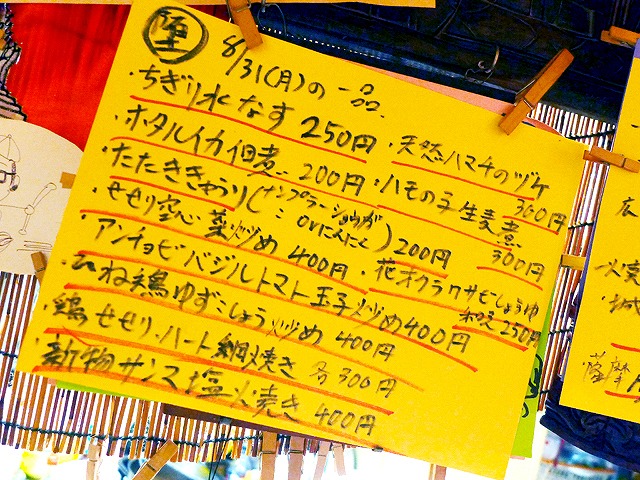 堕
8/31(月)の一品
・ちぎり水なす 250円
・ホタルイカ佃煮 200円
・たたききゅうり(ナンプラーショウガ orにんにく) 200円
・せせり空心菜炒め 400円
・アンチョビバジルトマト玉子炒め 400円
・ひね鶏ゆずこしょう炒め 400円
・鶏せせり・ハート網焼き 各300円
・新物サンマ塩焼き 400円
・天然ハマチのヅケ 300円
・ハモの子生姜煮 300円
・花オクラワサビしょうゆ和え 250円
薩摩